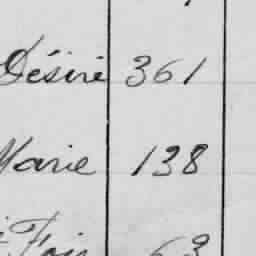 Désiré 361
Marie 138
Fois 63